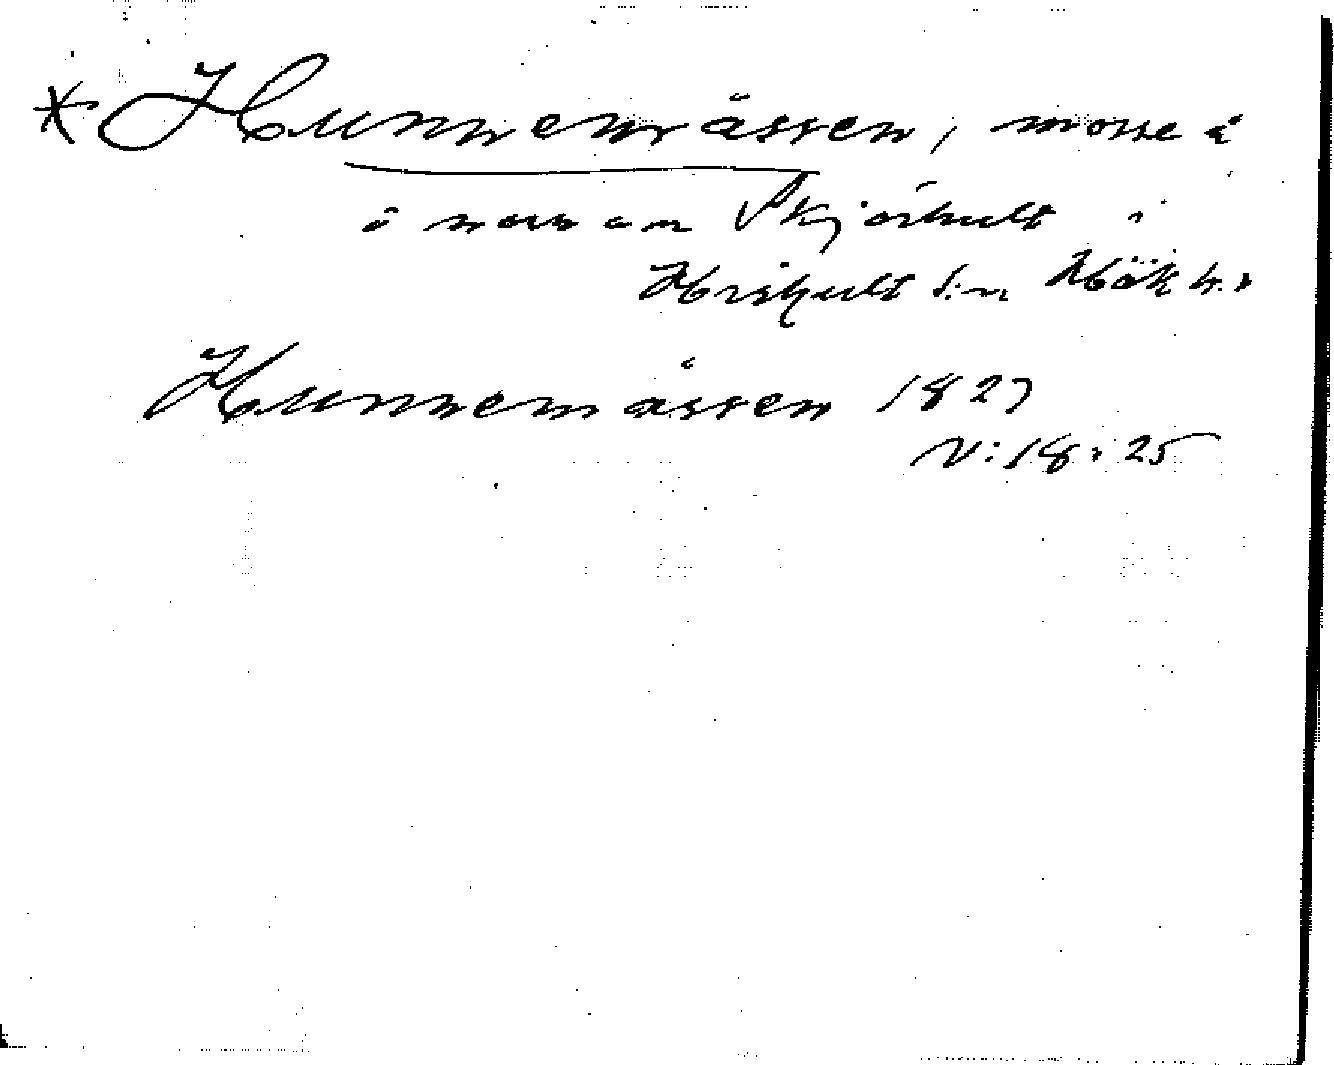 * Hunnemåssen, mosse å
ö norr om Skjörhult i
Hishult s:n Hök h.
Hunnemåssen 1827
V:18:25